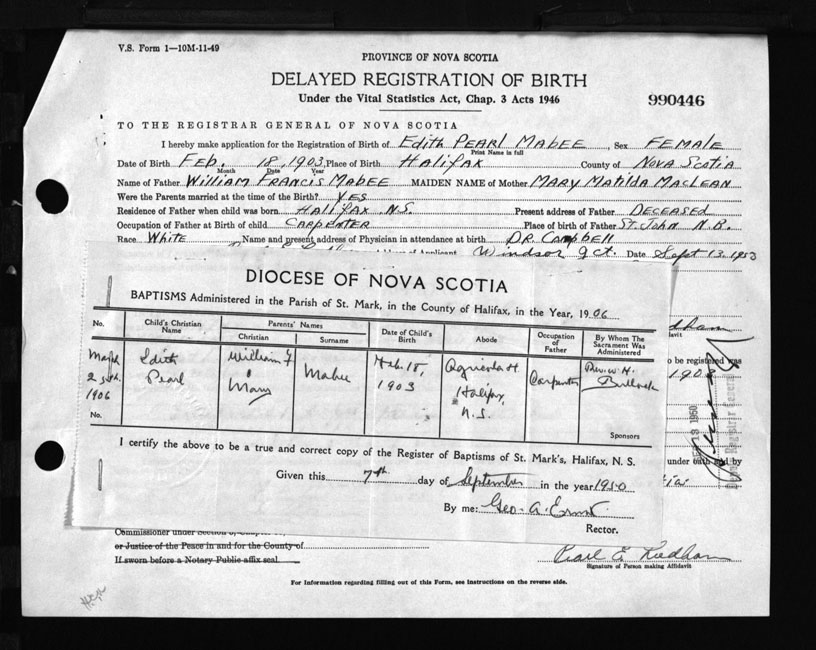 V.S. Form 1—10M-11-49
PROVINCE OF NOVA SCOTIA
DELAYED REGISTRATION OF BIRTH
Under the Vital Statistics Act, Chap. 3 Acts 1946
990446
TO THE REGISTRAR GENERAL OF NOVA SCOTIA
I hereby make application for the Registration of Birth of Edith PEARL MabEE, Sex FEMALE
Print Name in full
Date of Birth FEB. 18, 1903, Place of Birth HALIFAX County of NOVA SCOTIA
Month Date Year
Name of Father William FRANCIS MabEE MAIDEN NAME of Mother MARY MATILDA MACLEAN
Were the Parents married at the time of the Birth? YES
Residence of Father when child was born HALIFAX N.S. Present address of Father DECEASED
Occupation of Father at Birth of child CARPENTER Place of birth of Father ST. JOHN N.B.
Race White Name and present address of Physician in attendance at birth DR. CAMPBELL
Windsor Jct. Date Sept 13, 1950
DIOCESE OF NOVA SCOTIA
BAPTISMS Administered in the Parish of St. Mark, in the County of Halifax, in the Year, 1906
No. Child's Christian Name Parents' Names Christian Surname Date of Child's Birth Abode Occupation of Father By Whom The Sacrament Was Administered
March 25th. 1906 Edith Pearl William F Mary Mabee Feb. 18, 1903 Agricola St. Halifax, N.S. Carpenter H. Bullock
No.
Sponsors
I certify the above to be a true and correct copy of the Register of Baptisms of St. Mark's, Halifax, N. S.
Given this 7th day of September in the year 1950
By me: Geo. A. Ernst
Rector.
be registered was
190
13 1950
under oath and by
Commissioner under Section
or Justice of the Peace in and for the County of
If sworn before a Notary Public affix seal
Pearl E Keedham
Signature of Person making Affidavit
For Information regarding filling out of this Form, see instructions on the reverse side.